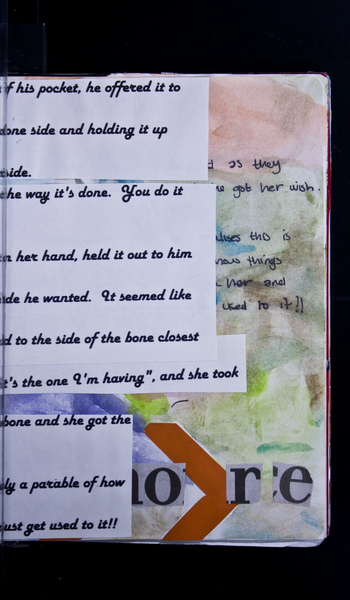 of his pocket, he offered it to
one side and holding it up
side.
the way it's done. You do it
her hand, held it out to him
he wanted. It seemed like
to the side of the bone closest
it's the one I'm having", and she took
bone and she got the
a parable of how
just get used to it!!
as they
got her wish.
this is
things
her and
used to it!!
re